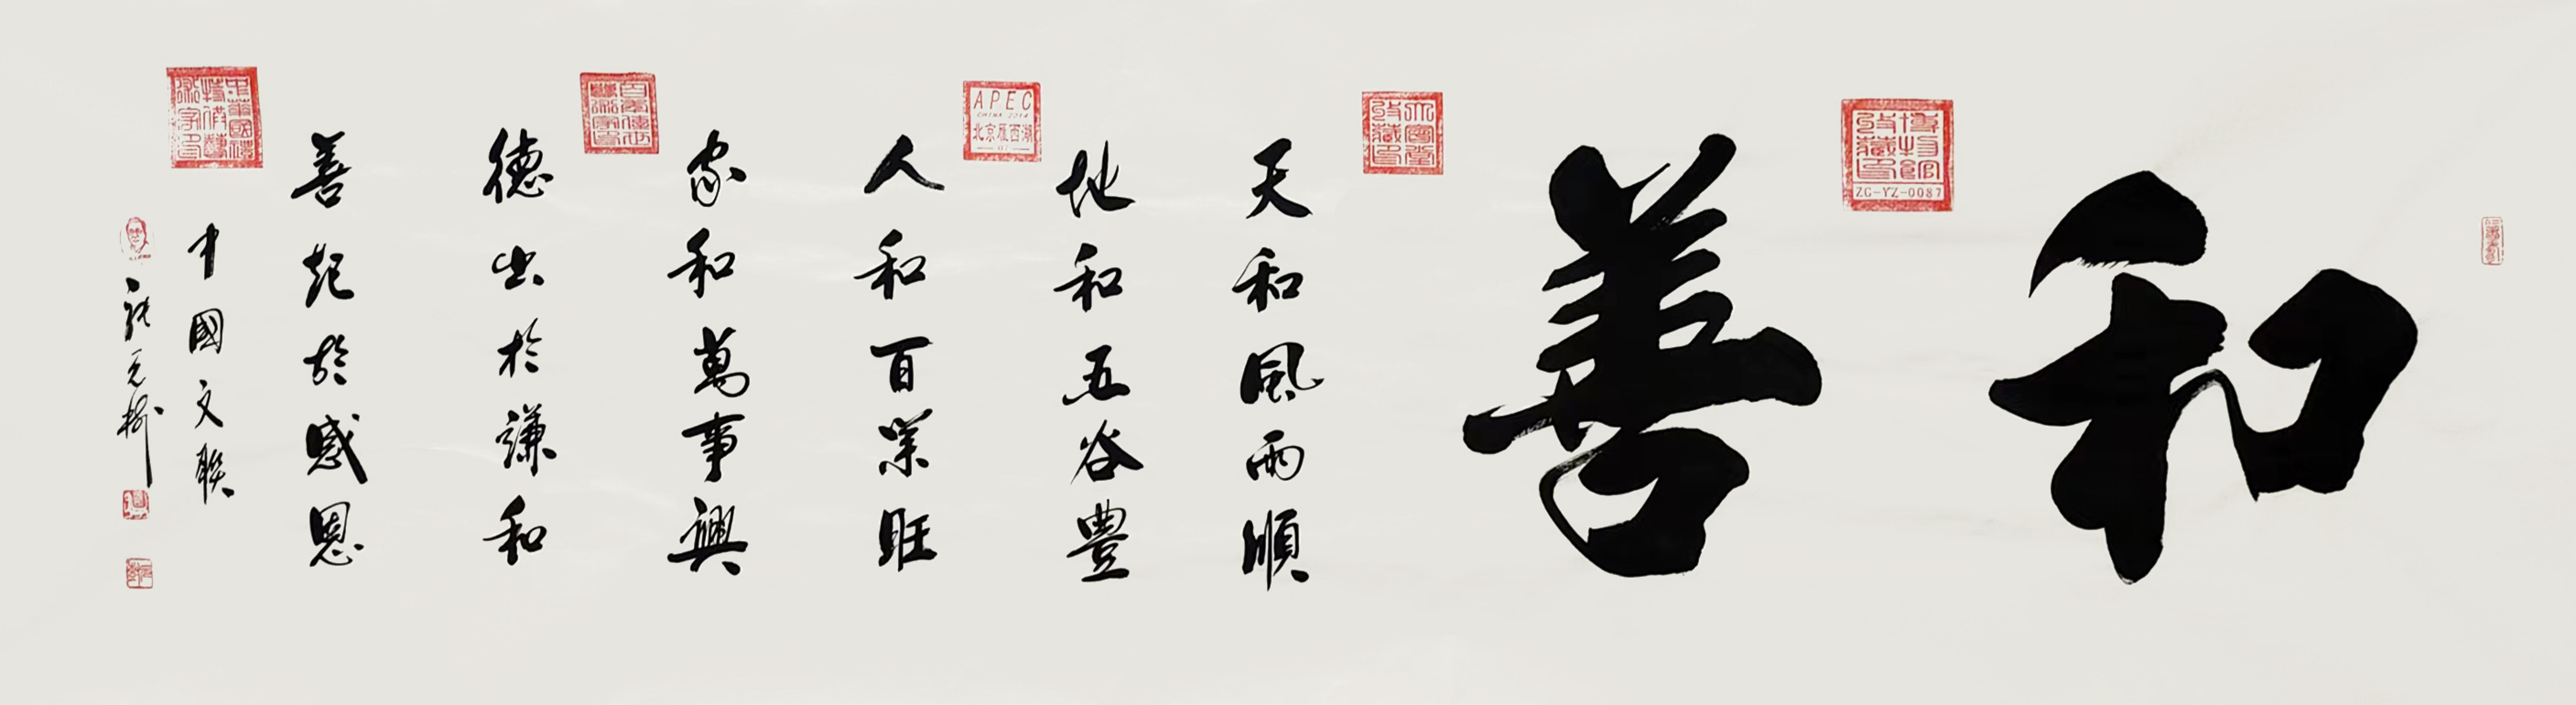 和善
天和風雨順
地和五谷豐
人和百業旺
家和萬事興
德出於謙和
善起於感恩
中國文聯
博物館收藏印
ZG-YZ-0087
APEC
CHINA 2014
北京雁西湖